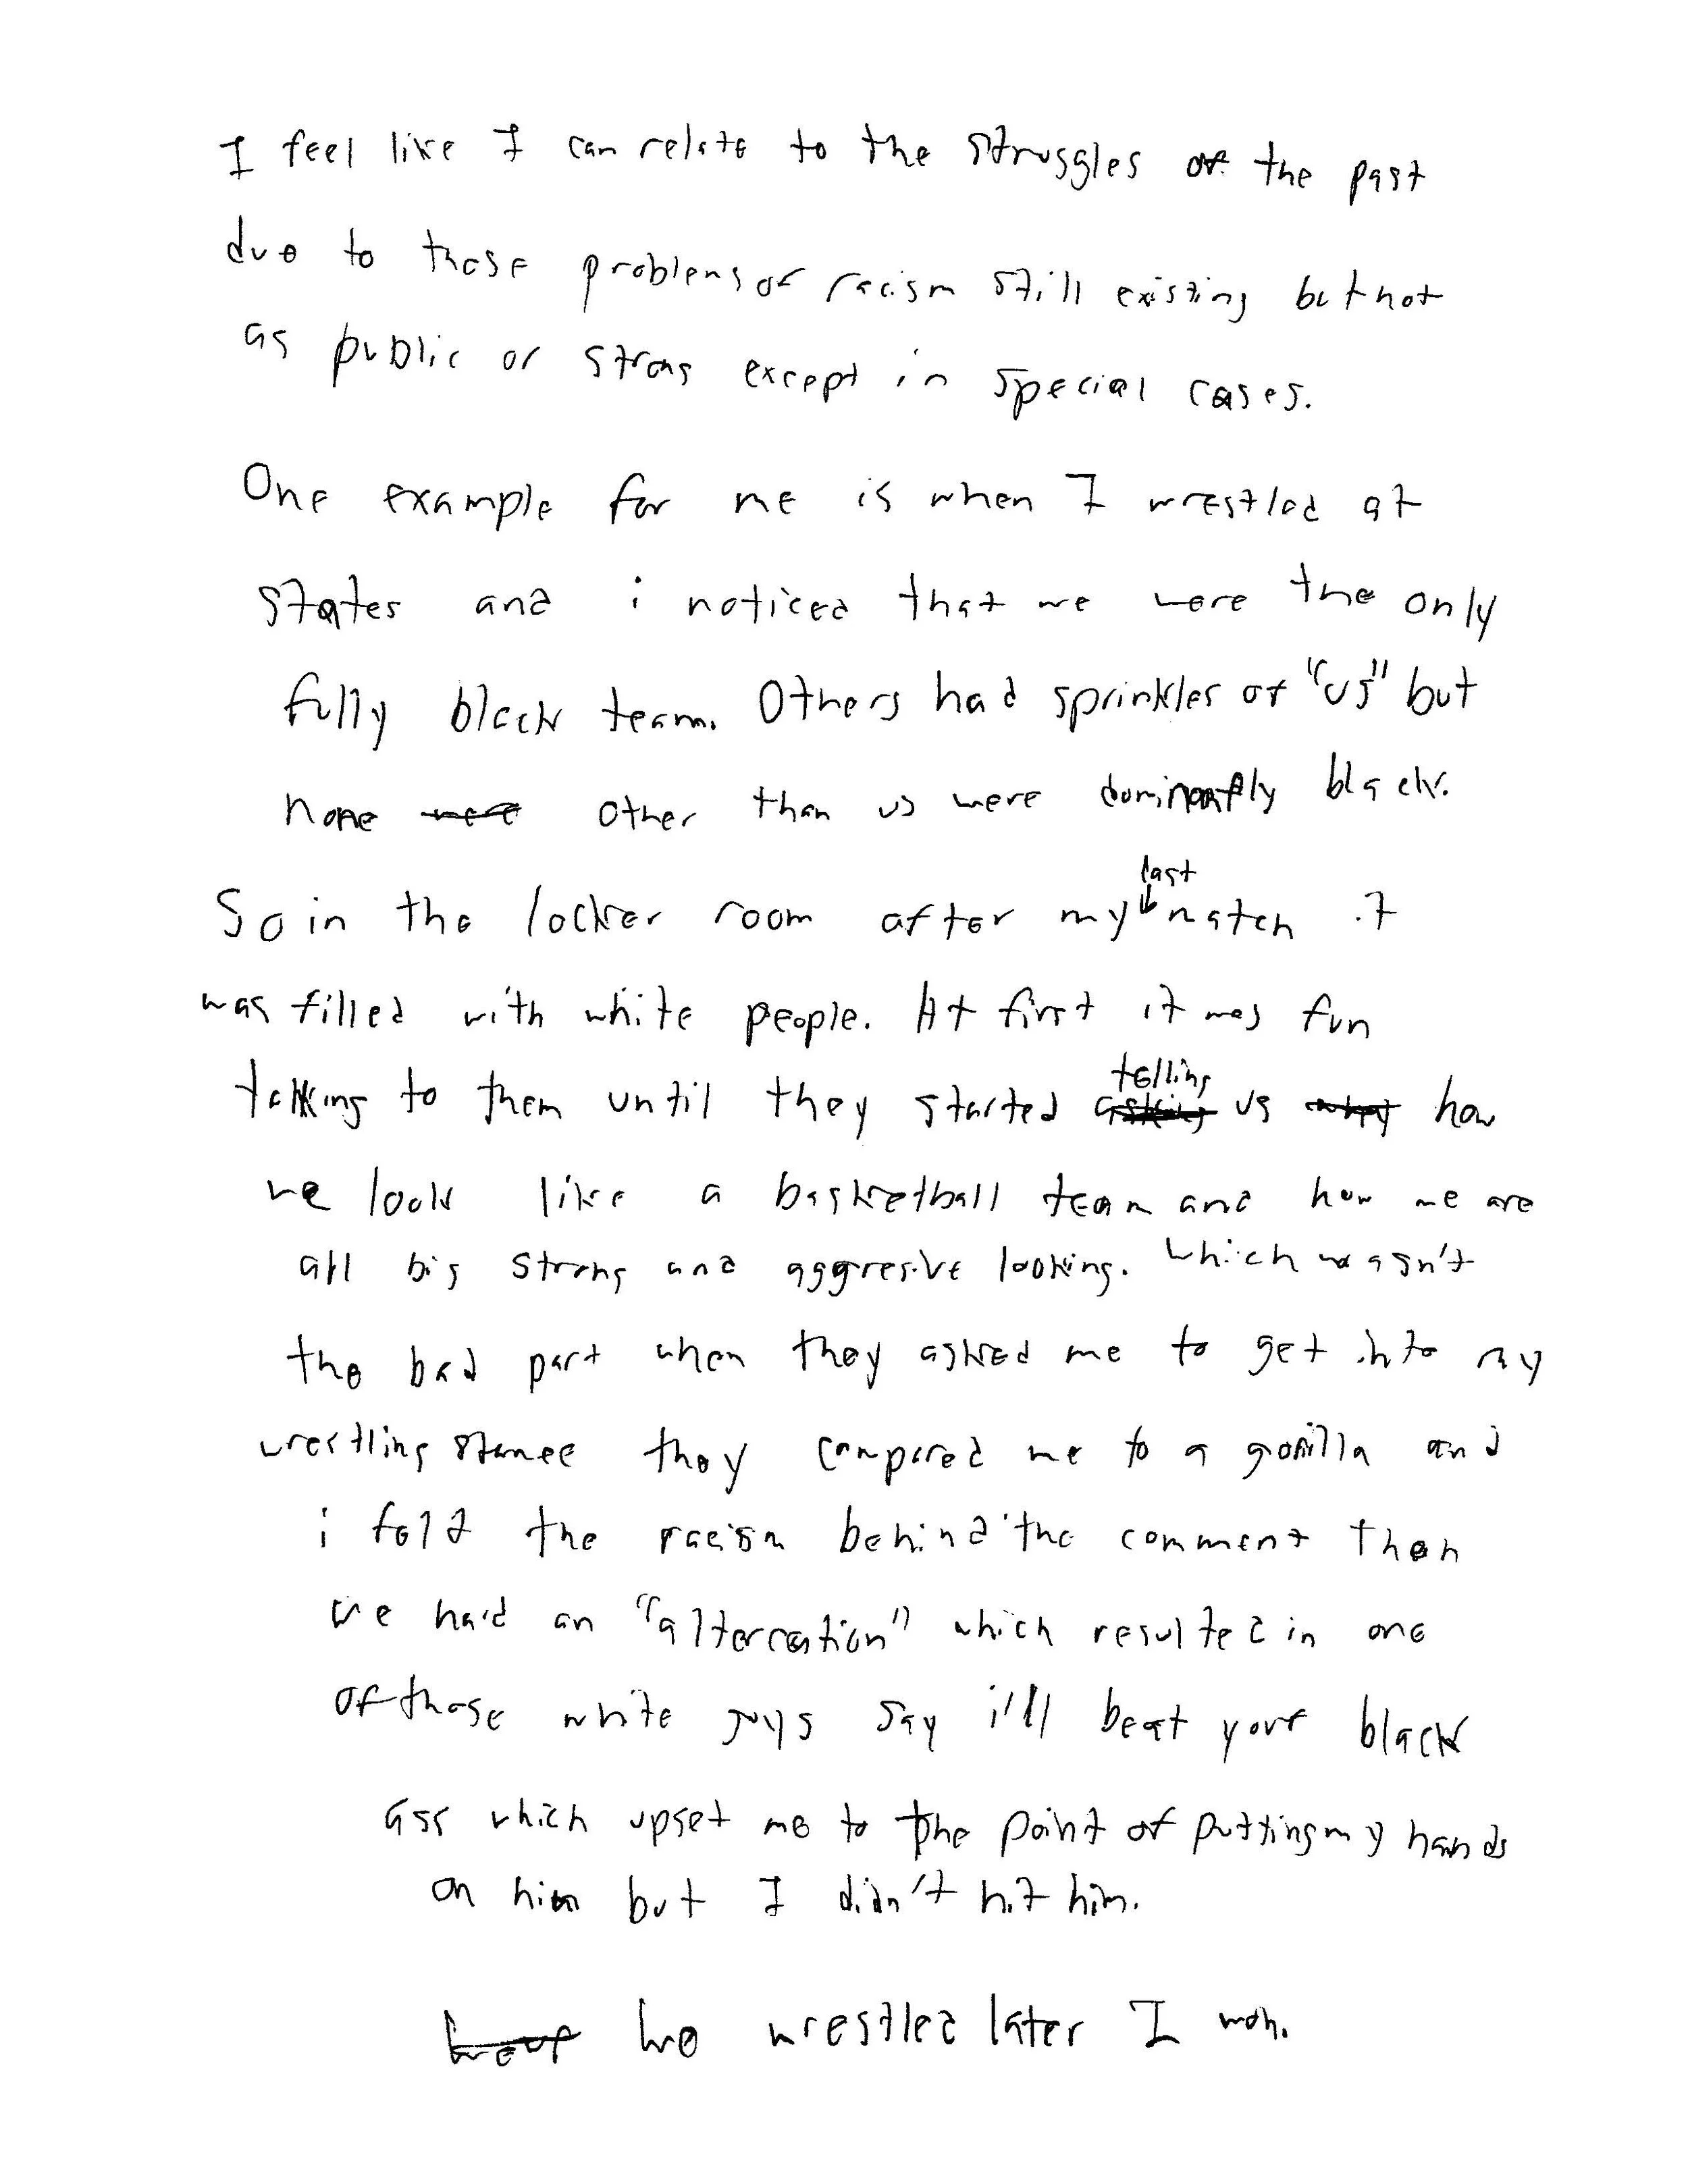 I feel like I can relate to the struggles of the past
due to those problems of racism still existing but not
as public or strong except in special cases.
One example for me is when I wrestled at
states and i noticed that we were the only
fully black team. Others had sprinkles of "us" but
none were other than us were dominantly black.
So in the locker room after my last match it
was filled with white people. At first it was fun
talking to them until they started asking telling us how
we look like a basketball team and how we are
all big strong and aggresive looking. which wasn't
the bad part when they asked me to get into my
wrestling stance they compared me to a gorilla and
i felt the racism behind the comment then
we had an "altercation" which resulted in one
of those white guys say i'll beat your black
ass which upset me to the point of putting my hands
on him but I didn't hit him.
We wrestled later I won.